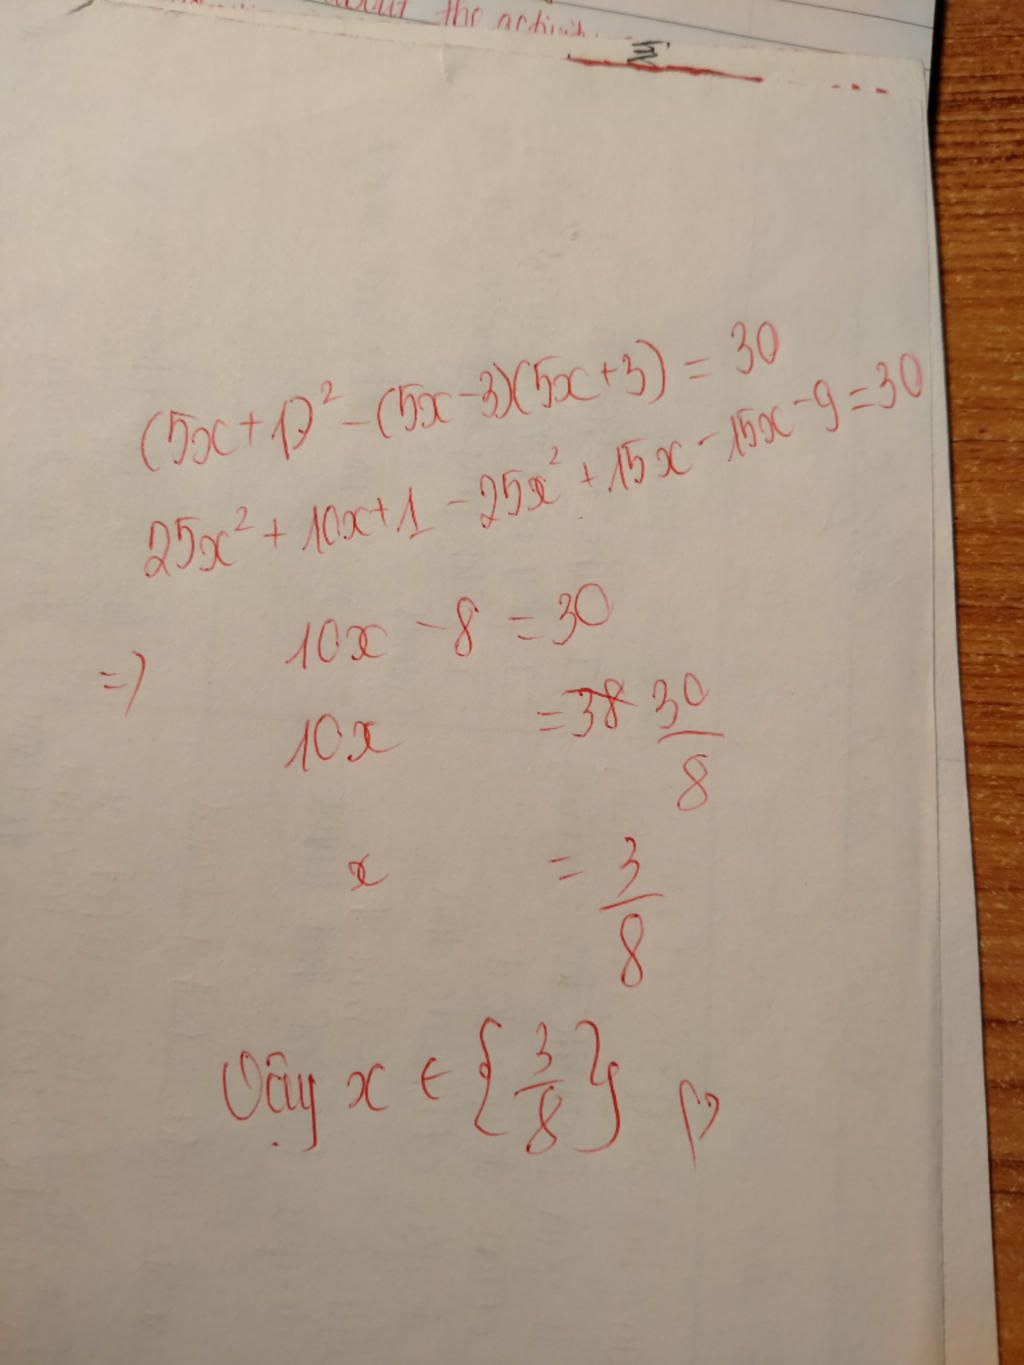 about the activit
(5x+1)² - (5x-3)(5x+3) = 30
25x² + 10x+1 - 25x² + 15x - 15x - 9 = 30
=> 10x - 8 = 30
10x = 38 30/8
x = 3/8
Vậy x ∈ {3/8}